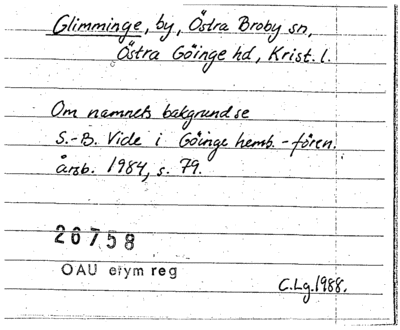 Glimminge, by, Östra Broby sn,
Östra Göinge hd, Krist. l.
Om namnets bakgrund se
S.-B. Vide i Göinge hemb.-fören.
årsb. 1984, s. 79.
26758
OAU etym reg
C.Lg. 1988.